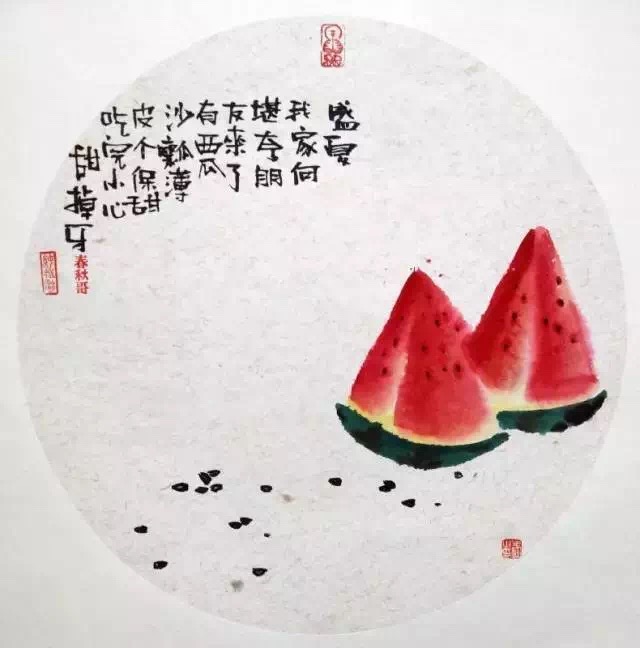 盛夏
我家何
堪夸朋
友来了
有西瓜
沙瓤薄
皮个保甜
吃完小心
甜掉牙
春秋哥